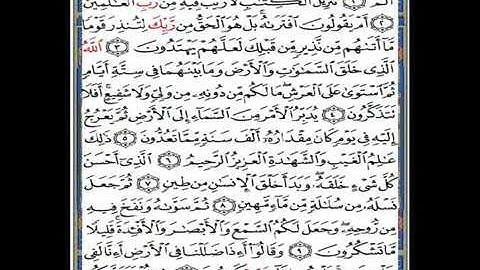 الٓمٓ ۝١ تَنزِيلُ ٱلْكِتَٰبِ لَا رَيْبَ فِيهِ مِن رَّبِّ ٱلْعَٰلَمِينَ
۝٢ أَمْ يَقُولُونَ ٱفْتَرَىٰهُ ۚ بَلْ هُوَ ٱلْحَقُّ مِن رَّبِّكَ لِتُنذِرَ قَوْمًا
مَّآ أَتَىٰهُم مِّن نَّذِيرٍ مِّن قَبْلِكَ لَعَلَّهُمْ يَهْتَدُونَ ۝٣ ٱللَّهُ
ٱلَّذِى خَلَقَ ٱلسَّمَٰوَٰتِ وَٱلْأَرْضَ وَمَا بَيْنَهُمَا فِى سِتَّةِ أَيَّامٍ
ثُمَّ ٱسْتَوَىٰ عَلَى ٱلْعَرْشِ ۖ مَا لَكُم مِّن دُونِهِۦ مِن وَلِىٍّ وَلَا شَفِيعٍ ۚ أَفَلَا
تَتَذَكَّرُونَ ۝٤ يُدَبِّرُ ٱلْأَمْرَ مِنَ ٱلسَّمَآءِ إِلَى ٱلْأَرْضِ ثُمَّ يَعْرُجُ
إِلَيْهِ فِى يَوْمٍ كَانَ مِقْدَارُهُۥٓ أَلْفَ سَنَةٍ مِّمَّا تَعُدُّونَ ۝٥ ذَٰلِكَ
عَٰلِمُ ٱلْغَيْبِ وَٱلشَّهَٰدَةِ ٱلْعَزِيزُ ٱلرَّحِيمُ ۝٦ ٱلَّذِىٓ أَحْسَنَ
كُلَّ شَىْءٍ خَلَقَهُۥ ۖ وَبَدَأَ خَلْقَ ٱلْإِنسَٰنِ مِن طِينٍ ۝٧ ثُمَّ جَعَلَ
نَسْلَهُۥ مِن سُلَٰلَةٍ مِّن مَّآءٍ مَّهِينٍ ۝٨ ثُمَّ سَوَّىٰهُ وَنَفَخَ فِيهِ
مِن رُّوحِهِۦ ۖ وَجَعَلَ لَكُمُ ٱلسَّمْعَ وَٱلْأَبْصَٰرَ وَٱلْأَفْـِٔدَةَ ۚ قَلِيلًا
مَّا تَشْكُرُونَ ۝٩ وَقَالُوٓا۟ أَءِذَا ضَلَلْنَا فِى ٱلْأَرْضِ أَءِنَّا لَفِى